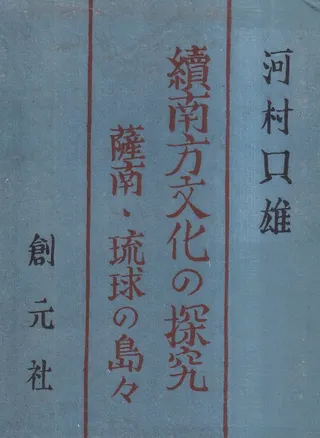 河村只雄
續南方文化の探究
薩南、琉球の島々
創元社